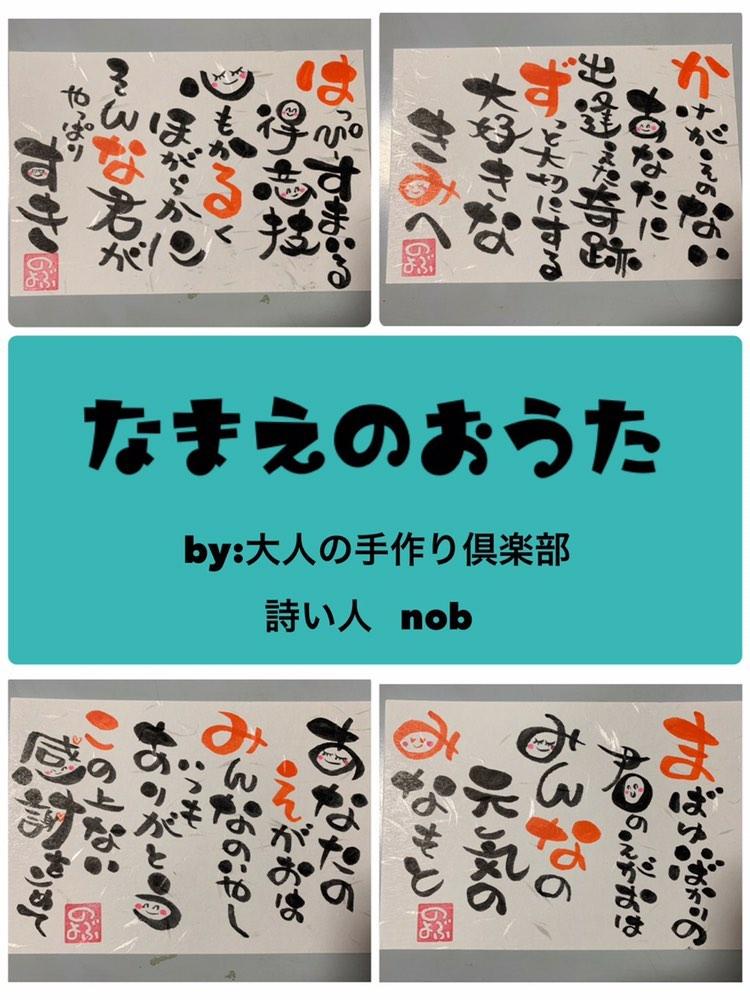 はっぴすまいる
得意技
心もかるく
ほがらかに
そんな君が
やっぱり
すき
のぶよ
かけがえのない
あなたに
出逢えた奇跡
ずっと大切にする
大好きな
きみへ
のぶよ
なまえのおうた
by:大人の手作り倶楽部
詩い人 nob
あなたの
えがおは
みんなのいやし
いつも
ありがとう
この上ない
感謝をこめて
のぶよ
まばゆいばかりの
君のえがおは
みんなの
元気の
みなもと
のぶよ